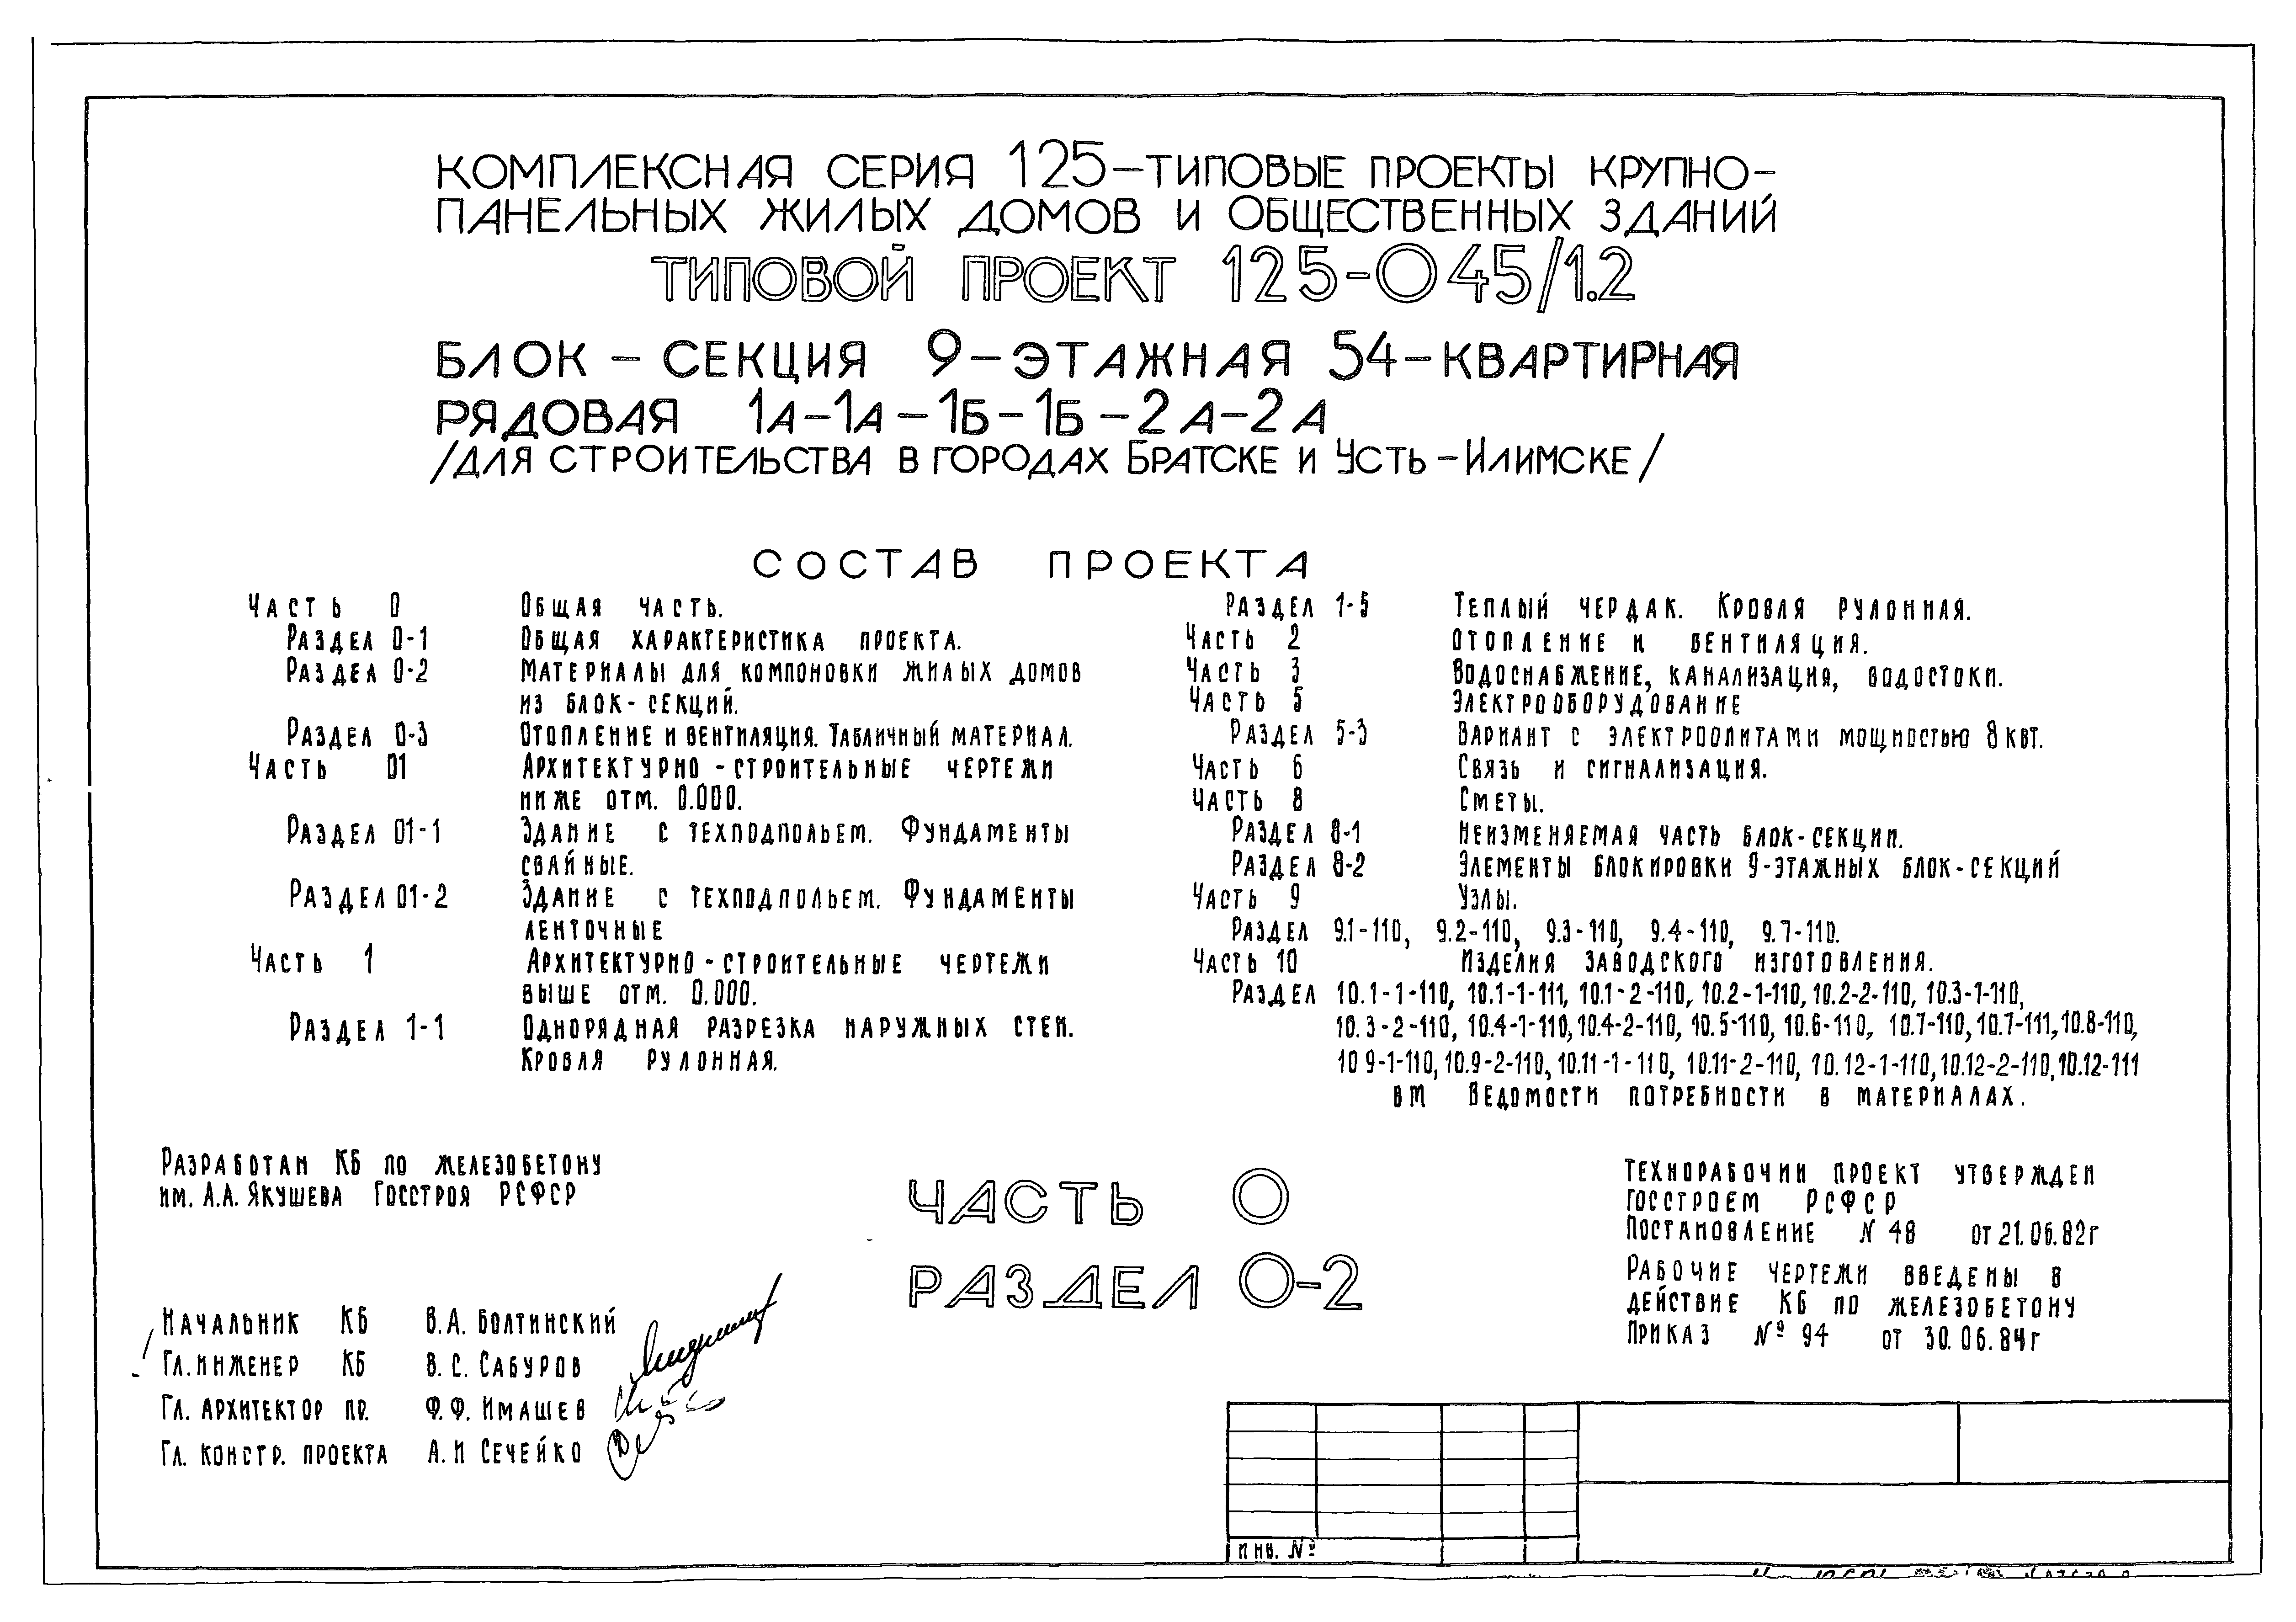 КОМПЛЕКСНАЯ СЕРИЯ 125-ТИПОВЫЕ ПРОЕКТЫ КРУПНО-
ПАНЕЛЬНЫХ ЖИЛЫХ ДОМОВ И ОБЩЕСТВЕННЫХ ЗДАНИЙ
ТИПОВОЙ ПРОЕКТ 125-045/1.2
БЛОК-СЕКЦИЯ 9-ЭТАЖНАЯ 54-КВАРТИРНАЯ
РЯДОВАЯ 1А-1А-1Б-1Б-2А-2А
/ДЛЯ СТРОИТЕЛЬСТВА В ГОРОДАХ БРАТСКЕ И УСТЬ-ИЛИМСКЕ/
СОСТАВ ПРОЕКТА
ЧАСТЬ 0 ОБЩАЯ ЧАСТЬ.
РАЗДЕЛ 0-1 ОБЩАЯ ХАРАКТЕРИСТИКА ПРОЕКТА.
РАЗДЕЛ 0-2 МАТЕРИАЛЫ ДЛЯ КОМПОНОВКИ ЖИЛЫХ ДОМОВ
ИЗ БЛОК-СЕКЦИЙ.
РАЗДЕЛ 0-3 ОТОПЛЕНИЕ И ВЕНТИЛЯЦИЯ. ТАБЛИЧНЫЙ МАТЕРИАЛ.
ЧАСТЬ 01 АРХИТЕКТУРНО-СТРОИТЕЛЬНЫЕ ЧЕРТЕЖИ
НИЖЕ ОТМ. 0.000.
РАЗДЕЛ 01-1 ЗДАНИЕ С ТЕХПОДПОЛЬЕМ. ФУНДАМЕНТЫ
СВАЙНЫЕ.
РАЗДЕЛ 01-2 ЗДАНИЕ С ТЕХПОДПОЛЬЕМ. ФУНДАМЕНТЫ
ЛЕНТОЧНЫЕ
ЧАСТЬ 1 АРХИТЕКТУРНО-СТРОИТЕЛЬНЫЕ ЧЕРТЕЖИ
ВЫШЕ ОТМ. 0.000.
РАЗДЕЛ 1-1 ОДНОРЯДНАЯ РАЗРЕЗКА НАРУЖНЫХ СТЕН.
КРОВЛЯ РУЛОННАЯ.
РАЗДЕЛ 1-5 ТЕПЛЫЙ ЧЕРДАК. КРОВЛЯ РУЛОННАЯ.
ЧАСТЬ 2 ОТОПЛЕНИЕ И ВЕНТИЛЯЦИЯ.
ЧАСТЬ 3 ВОДОСНАБЖЕНИЕ, КАНАЛИЗАЦИЯ, ВОДОСТОКИ.
ЧАСТЬ 5 ЭЛЕКТРООБОРУДОВАНИЕ
РАЗДЕЛ 5-3 ВАРИАНТ С ЭЛЕКТРОПЛИТАМИ МОЩНОСТЬЮ 8 КВТ.
ЧАСТЬ 6 СВЯЗЬ И СИГНАЛИЗАЦИЯ.
ЧАСТЬ 8 СМЕТЫ.
РАЗДЕЛ 8-1 НЕИЗМЕНЯЕМАЯ ЧАСТЬ БЛОК-СЕКЦИИ.
РАЗДЕЛ 8-2 ЭЛЕМЕНТЫ БЛОКИРОВКИ 9-ЭТАЖНЫХ БЛОК-СЕКЦИЙ
ЧАСТЬ 9 УЗЛЫ.
РАЗДЕЛ 9.1-110, 9.2-110, 9.3-110, 9.4-110, 9.7-110.
ЧАСТЬ 10 ИЗДЕЛИЯ ЗАВОДСКОГО ИЗГОТОВЛЕНИЯ.
РАЗДЕЛ 10.1-1-110, 10.1-1-111, 10.1-2-110, 10.2-1-110, 10.2-2-110, 10.3-1-110,
10.3-2-110, 10.4-1-110, 10.4-2-110, 10.5-110, 10.6-110, 10.7-110, 10.7-111, 10.8-110,
10 9-1-110, 10.9-2-110, 10.11-1-110, 10.11-2-110, 10.12-1-110, 10.12-2-110, 10.12-111
ВМ ВЕДОМОСТИ ПОТРЕБНОСТИ В МАТЕРИАЛАХ.
РАЗРАБОТАН КБ ПО ЖЕЛЕЗОБЕТОНУ
ИМ. А.А. ЯКУШЕВА ГОССТРОЯ РСФСР
ЧАСТЬ 0
РАЗДЕЛ 0-2
ТЕХНОРАБОЧИЙ ПРОЕКТ УТВЕРЖДЕН
ГОССТРОЕМ РСФСР
ПОСТАНОВЛЕНИЕ N 48 ОТ 21.06.82г
РАБОЧИЕ ЧЕРТЕЖИ ВВЕДЕНЫ В
ДЕЙСТВИЕ КБ ПО ЖЕЛЕЗОБЕТОНУ
ПРИКАЗ № 94 ОТ 30.06.84г
НАЧАЛЬНИК КБ В.А. БОЛТИНСКИЙ
ГЛ. ИНЖЕНЕР КБ В.С. САБУРОВ
ГЛ. АРХИТЕКТОР ПР. Ф.Ф. ИМАШЕВ
ГЛ. КОНСТР. ПРОЕКТА А.И СЕЧЕЙКО
ИНВ. №